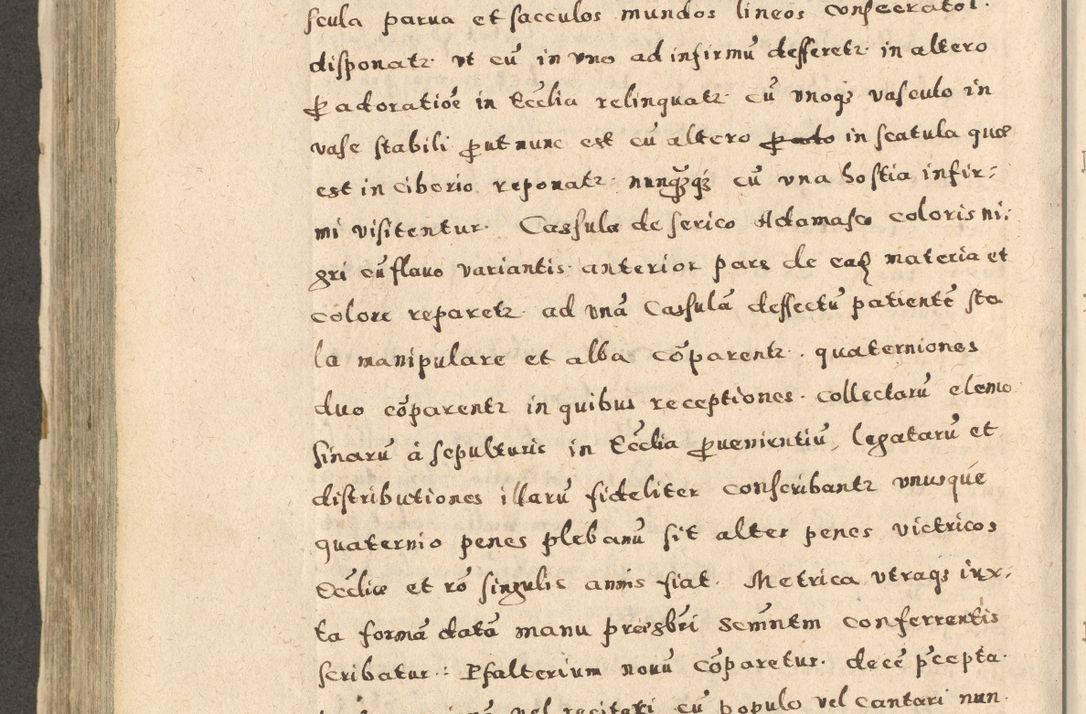 scula parua et sacculos mundos lineos consecrator.
disponatz. vt cũ in vno ad infirmũ defferetz. in altero
ꝑ adoratiõe in Eccĺia relinquatz. cũ vnoqз vasculo in
vase stabili ꝓut nunc est cũ altero in scatula quæ
est in ciborio reponatz. nunq̃qз cũ vna hostia infir:
mi visitentur. Cassula de serico Adamasco coloris ni:
gri cũ flauo variantis anterior pars de eaḍ materia et
colore reparetz. ad vnã Cassulã deffectũ patientẽ sto
la manipulare et alba cõparentz. quaterniones
duo cõparentz in quibus receptiones. collectarũ elemo
sinarũ à sepulturis in Eccĺia ꝓuenientiũ, legatarũ et
distributiones illarũ fideliter conscribantz vnusque
quaternio penes plebanũ sit alter penes victricos
Eccĺiæ et rõ singulis annis fiat. Metrica vtraqз iux:
ta formã datã manu præsbr̃i Semñtm conferrentis
scribatur: Psalterium nouũ cõparetur. decẽ p̃cepta.
vel recitari cũ populo vel cantari nun.